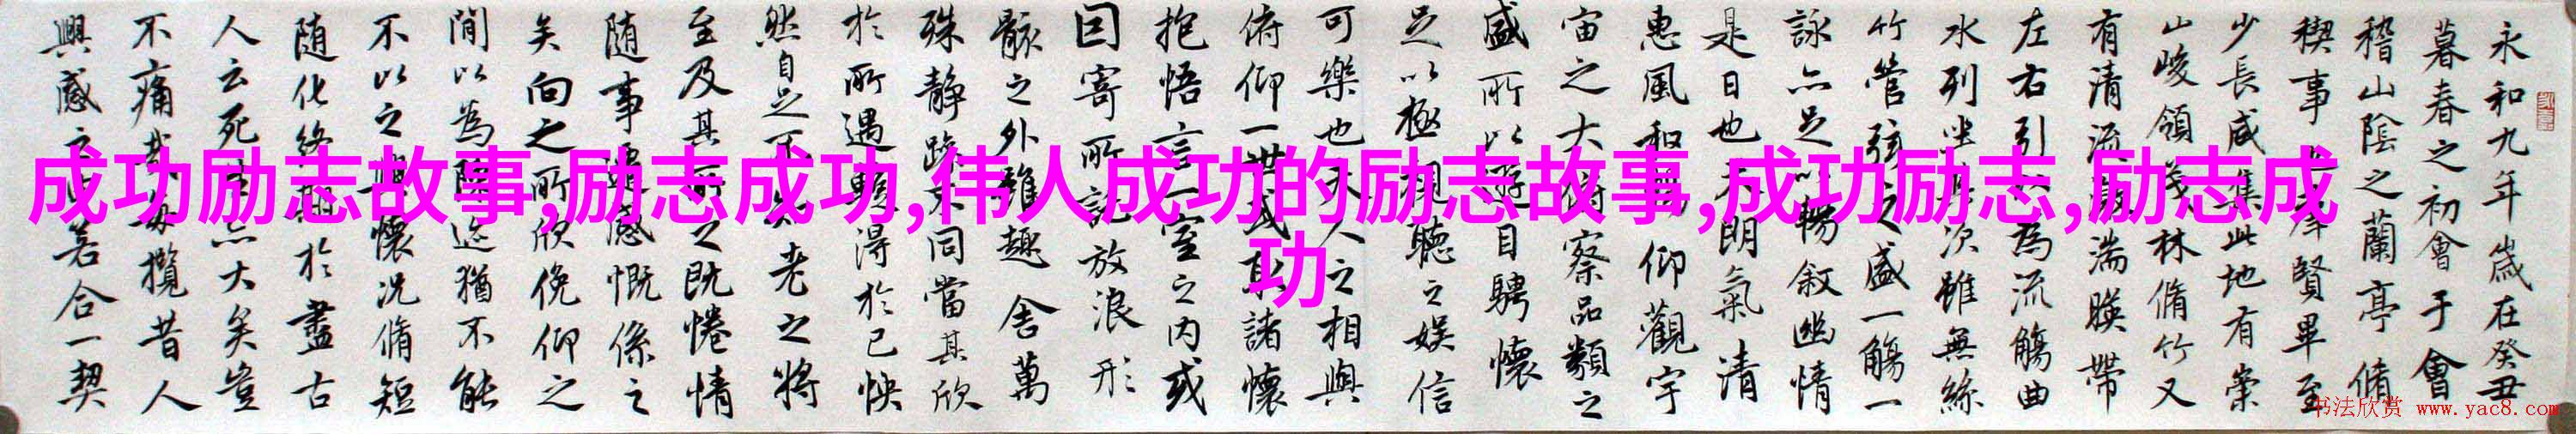 永和九年歲在癸丑
暮春之初會于會
稽山陰之蘭亭脩
稧事
賢畢至
少長咸集此地有崇
山峻領
林脩竹又
有清流
湍暎帶
左右引
為流觴曲
水列坐
次雖無絲
竹管弦之盛一觴一
詠亦足
暢敘幽情
是日也天朗氣清
惠風和暢仰觀宇
宙之大俯察品類之
盛所以遊目騁懷
足以極視聽之娛信
可樂也夫人之相與
俯仰一世或取諸懷
抱悟言一室之內或
因寄所託放浪形
骸之外雖趣舍萬
殊靜躁不同當其欣
於所遇暫得於己怏
然自足不知老之將
至及其所之既惓情
随事遷感慨係之
矣向之所欣俛仰之
閒以為陳迹猶不能
不以之興懷況脩短
随化終期於盡古
人云死生亦大矣豈
不痛哉每攬昔人
興感之由若合一契
成功励志故事,励志成功,伟人成功的励志故事,成功励志,励志成
功
书法欣赏 www.yac8.com